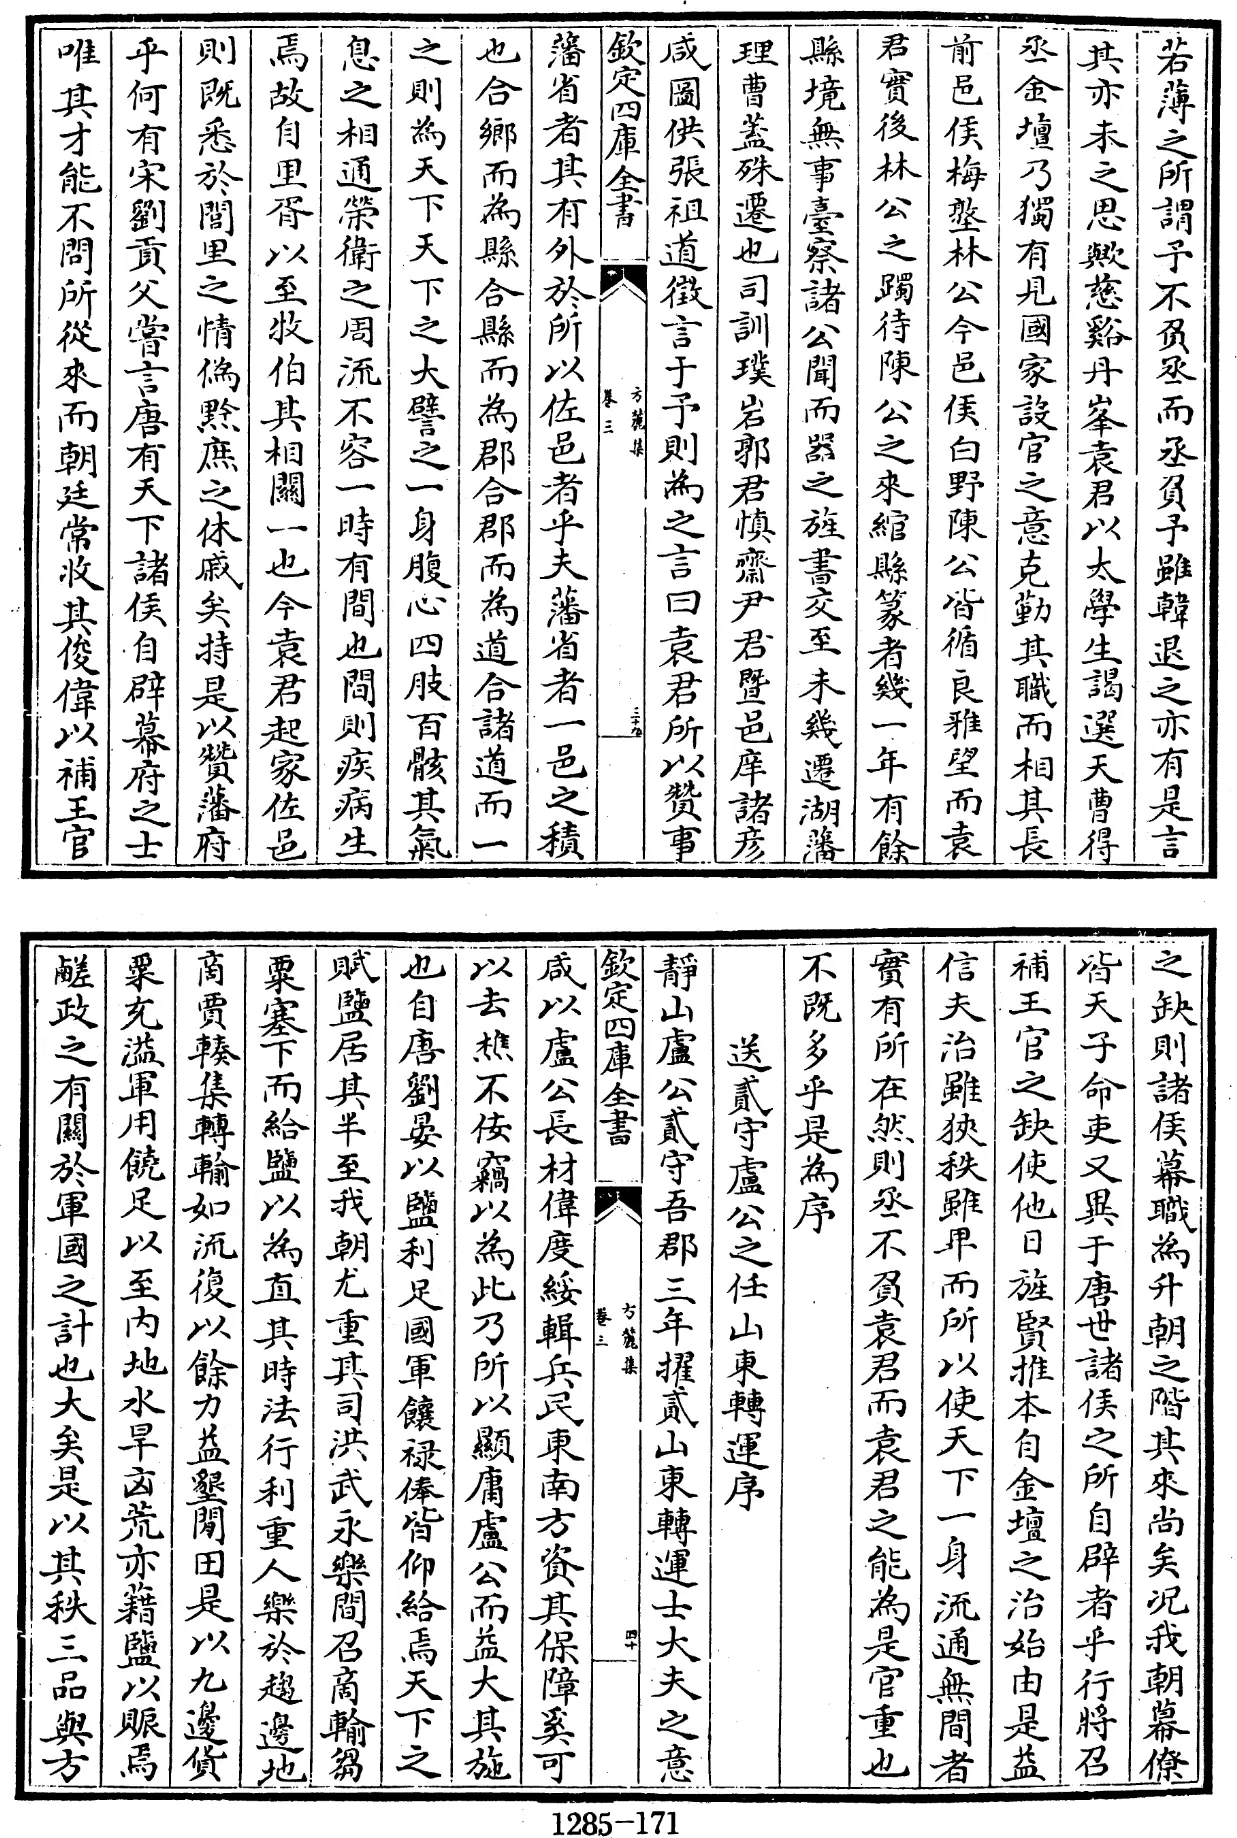 若薄之所謂予不負丞而丞負予雖韓退之亦有是言
其亦未之思歟慈谿丹峯袁君以太學生謁選天曹得
丞金壇乃獨有見國家設官之意克勤其職而相其長
前邑侯梅墪林公今邑侯白野陳公皆循良雅望而袁
君實後林公之躅待陳公之來綰縣篆者幾一年有餘
縣境無事臺察諸公聞而器之旌書交至未幾遷湖藩
理曹蓋殊遷也司訓璞岩郭君慎齋尹君暨邑庠諸彦
咸圖供張祖道徵言于予則為之言曰袁君所以贊事
欽定四庫全書
方麓集
卷三
三十九
藩省者其有外於所以佐邑者乎夫藩省者一邑之積
也合鄉而為縣合縣而為郡合郡而為道合諸道而一
之則為天下天下之大譬之一身腹心四肢百骸其氣
息之相通榮衛之周流不容一時有間也間則疾病生
焉故自里胥以至牧伯其相關一也今袁君起家佐邑
則既悉於閭里之情偽黙庶之休戚矣持是以贊藩府
乎何有宋劉貢父嘗言唐有天下諸侯自辟幕府之士
唯其才能不問所從來而朝廷常收其俊偉以補王官
之缺則諸侯幕職為升朝之階其來尚矣况我朝幕僚
皆天子命吏又異于唐世諸侯之所自辟者乎行將召
補王官之缺使他日旌賢推本自金壇之治始由是益
信夫治雖狹秩雖卑而所以使天下一身流通無間者
實有所在然則丞不負袁君而袁君之能為是官重也
不既多乎是為序
送貳守盧公之任山東轉運序
靜山盧公貳守吾郡三年擢貳山東轉運士大夫之意
欽定四庫全書
方麓集
卷三
四十
咸以盧公長材偉度綏輯兵民東南方資其保障奚可
以去樵不佞竊以為此乃所以顯庸盧公而益大其施
也自唐劉晏以鹽利足國軍饟禄俸皆仰給焉天下之
賦鹽居其半至我朝尤重其司洪武永樂間召商輸芻
粟塞下而給鹽以為直其時法行利重人樂於趨邊地
商賈輳集轉輸如流復以餘力益墾閒田是以九邊貨
粟充溢軍用饒足以至内地水旱凶荒亦藉鹽以賑焉
鹺政之有關於軍國之計也大矣是以其秩三品與方
1285-171